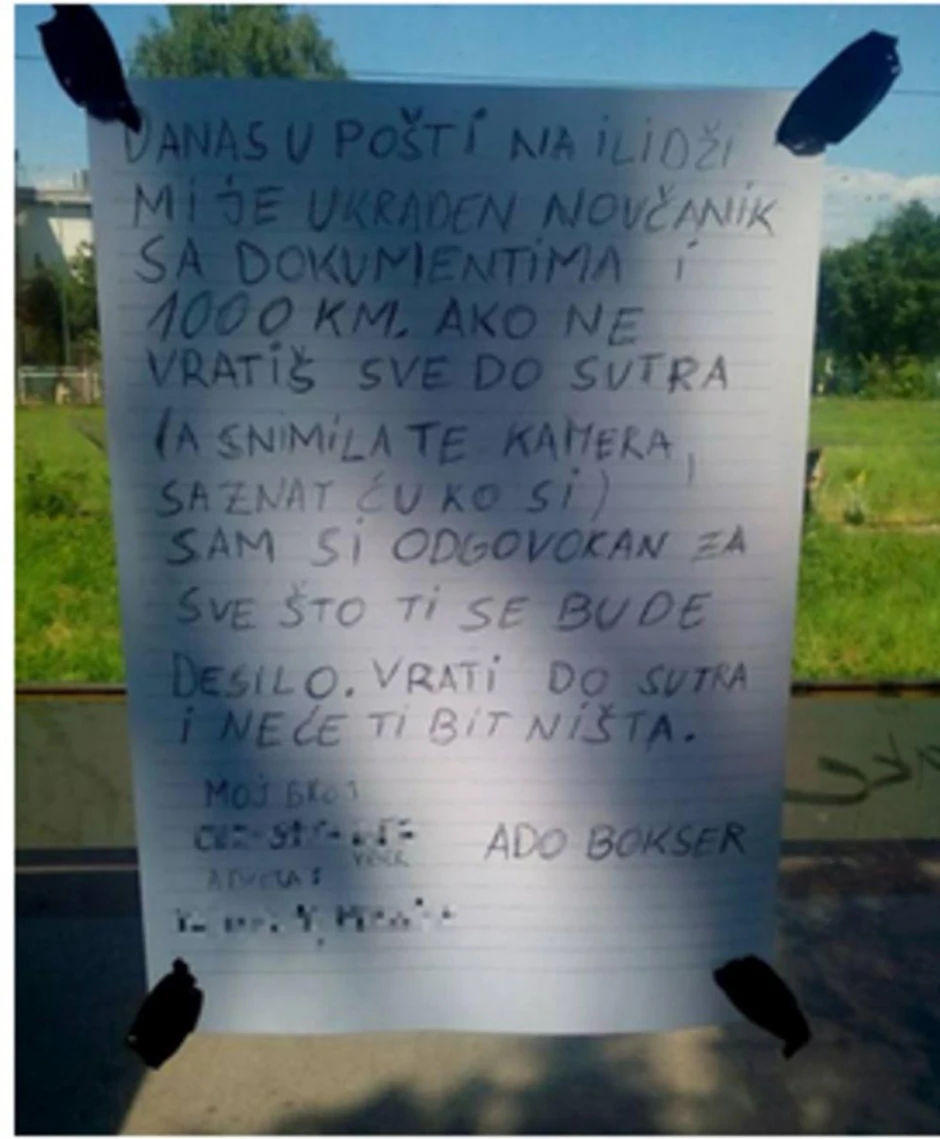 DANAS U POŠTI NA ILIDŽI
MI JE UKRADEN NOVČANIK
SA DOKUMENTIMA I
1000 KM. AKO NE
VRATIŠ SVE DO SUTRA
(A SNIMILA TE KAMERA,
SAZNAT ĆU KO SI)
SAM SI ODGOVORAN ZA
SVE ŠTO TI SE BUDE
DESILO. VRATI DO SUTRA
I NEĆE TI BIT NIŠTA.
MOJ BROJ
ADO BOKSER